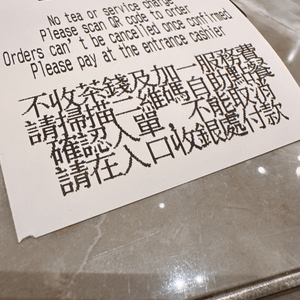 No tea or service charge
Please scan QR code to order
Orders can't be cancelled once confirmed
Please pay at the entrance cashier
不收茶錢及加一服務費
請掃描二維碼自助點餐
確認入單，不能取消
請在入口收銀處付款